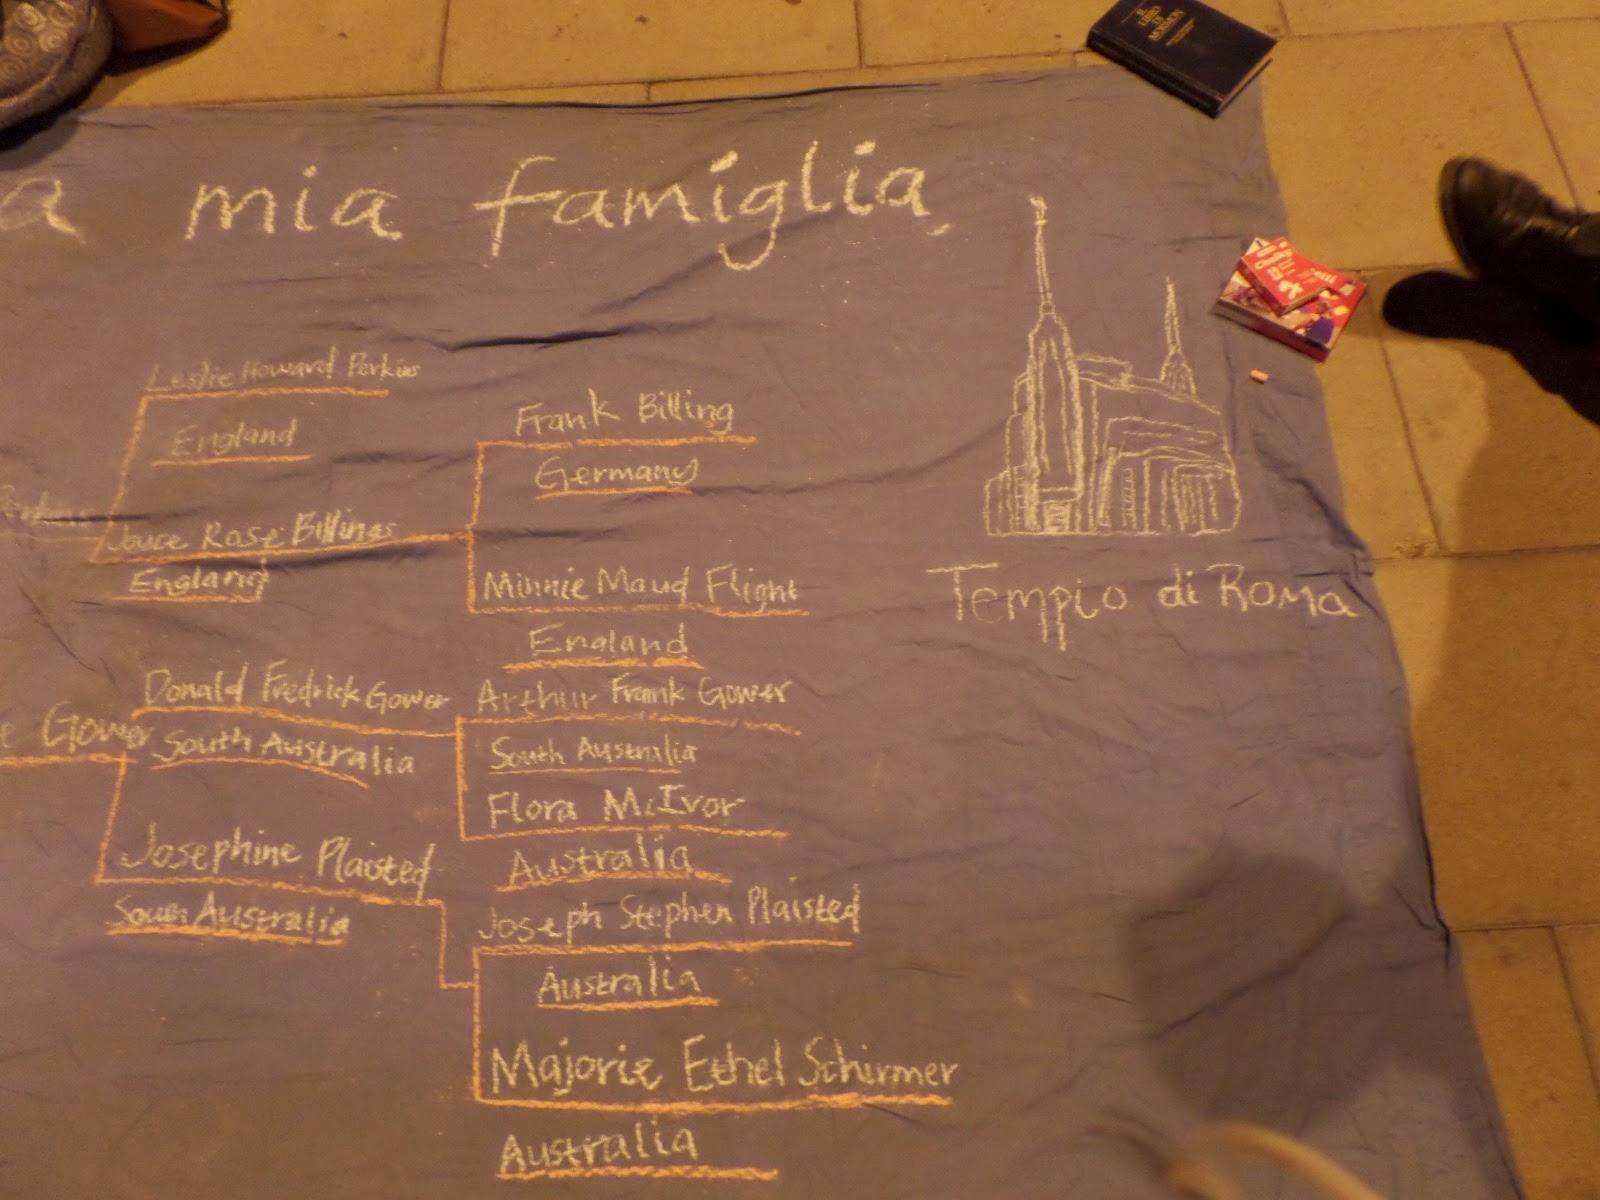 a mia famiglia
IL LIBRO DI MORMON
Chalky
Leslie Howard Perkins
England
Frank Billing
Germany
Perkins
Joyce Rose Billings
England
Minnie Maud Flight
England
Tempio di Roma
Donald Fredrick Gower
Arthur Frank Gower
e Gower
South Australia
South Australia
Flora McIvor
Josephine Plaisted
Australia
South Australia
Joseph Stephen Plaisted
Australia
Majorie Ethel Schirmer
Australia